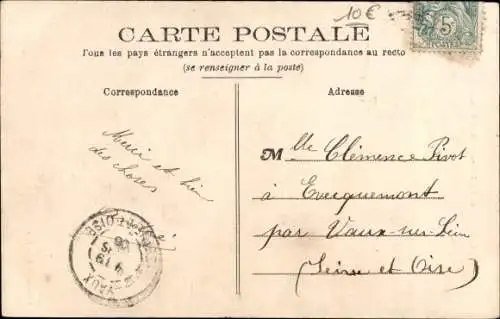 10 €
CARTE POSTALE
Tous les pays étrangers n'acceptent pas la correspondance au recto
(se renseigner à la poste)
Correspondance
Adresse
5
POSTES
Merci et bien
des choses
Mlle Clémence Pivot
à Evecquemont
par Vaux-sur-Seine
(Seine et Oise)
VAUX